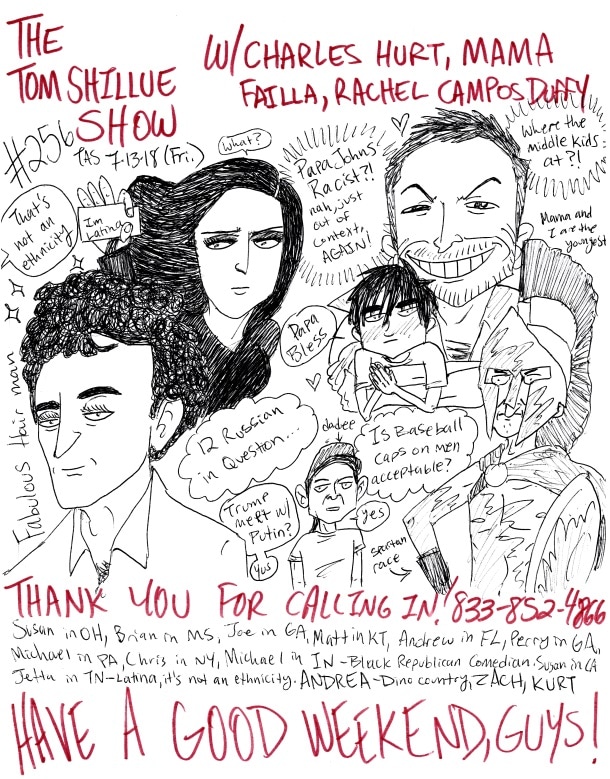 THE
TOM SHILLUE
SHOW
W/ CHARLES HURT, MAMA
FAILLA, RACHEL CAMPOS DUFFY
#256
TAS 7-13-18 (Fri.)
What?
That's
not an
ethnicity
Im
Latina
Papa Johns
Racist?!
nah, just
out of
context,
AGAIN!
Where the
middle kids
at?!
Mama and
I are the
youngest
Papa
Bless
Fabulous Hair man
12 Russian
in Question...
dadee
Is Baseball
caps on men
acceptable?
Trump
meet w/
Putin?
yus
yes
spartan
race
THANK YOU FOR CALLING IN! 833-852-4866
Susan in OH, Brian in MS, Joe in GA, Matt in KT, Andrew in FL, Perry in GA,
Michael in PA, Chris in NY, Michael in IN-Black Republican Comedian. Susan in CA
Jetta in TN-Latina, it's not an ethnicity. ANDREA-Dino country, ZACH, KURT
HAVE A GOOD WEEKEND, GUYS!